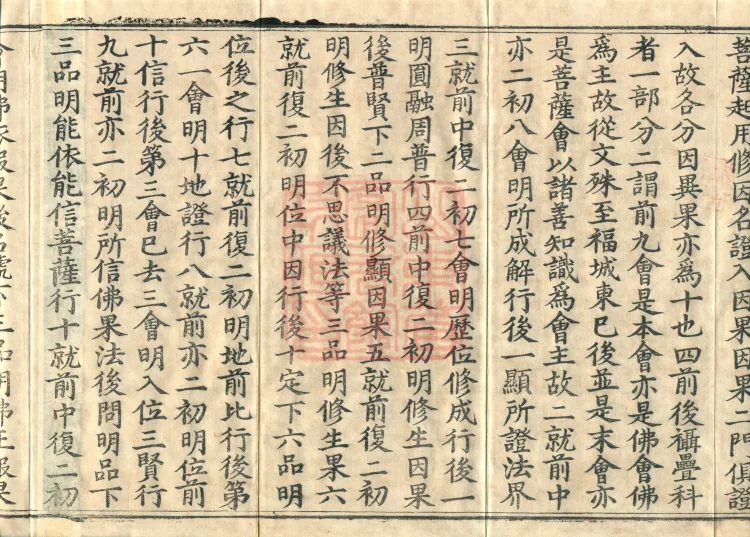 菩薩起用修因名證入因果因果二門俱證
入故各分因異果亦為十也四前後攝疊科
者一部分二謂前九會是本會亦是佛會佛
為主故從文殊至福城東已後並是末會亦
是菩薩會以諸善知識為會主故二就前中
亦二初八會明所成解行後一顯所證法界
三就前中復二初七會明歷位修成行後一
明圓融周普行四前中復二初明修生因果
後普賢下二品明修顯因果五就前復二初
明修生因後不思議法等三品明修生果六
就前復二初明位中因行後十定下六品明
位後之行七就前復二初明地前比行後第
六一會明十地證行八就前亦二初明位前
十信行後第三會已去三會明入位三賢行
九就前亦二初明所信佛果法後問明品下
三品明能依能信菩薩行十就前中復二初
會明佛依報果後名號下三品明佛正報果